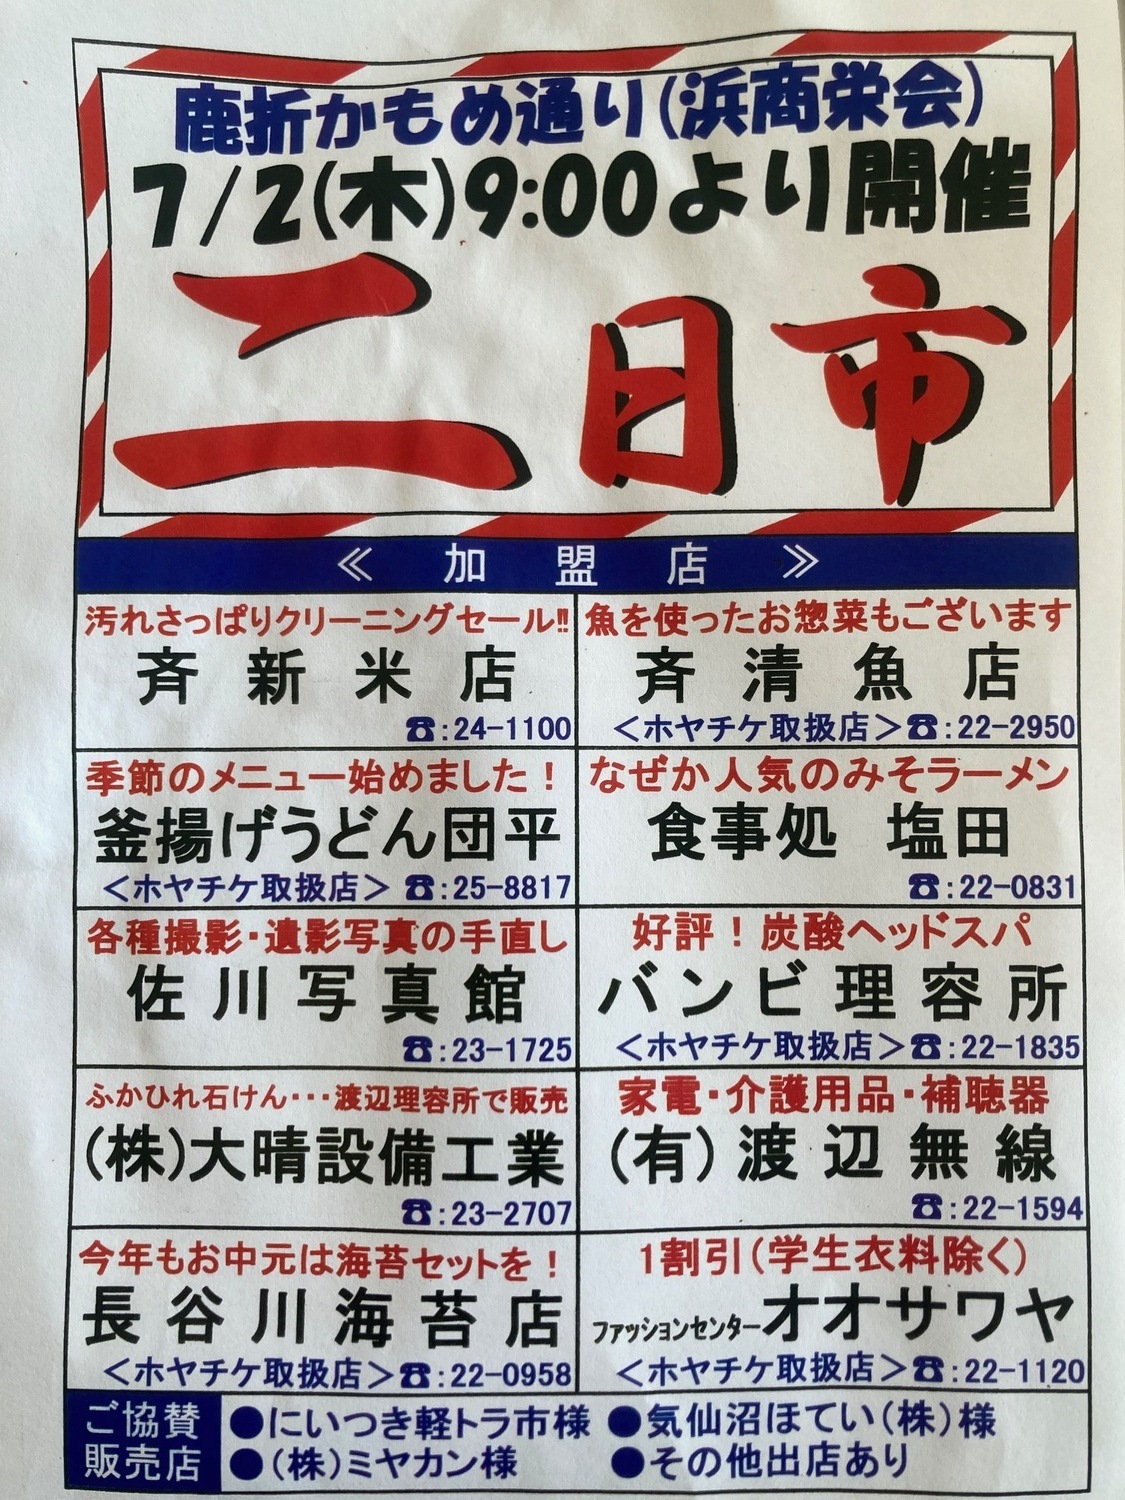 鹿折かもめ通り(浜商栄会)
7/2(木)9:00より開催
二日市
≪ 加 盟 店 ≫
汚れさっぱりクリーニングセール!!
斉新米店
☎:24-1100
魚を使ったお惣菜もございます
斉清魚店
<ホヤチケ取扱店>☎:22-2950
季節のメニュー始めました!
釜揚げうどん団平
<ホヤチケ取扱店>☎:25-8817
なぜか人気のみそラーメン
食事処 塩田
☎:22-0831
各種撮影・遺影写真の手直し
佐川写真館
☎:23-1725
好評!炭酸ヘッドスパ
バンビ理容所
<ホヤチケ取扱店>☎:22-1835
ふかひれ石けん・・・渡辺理容所で販売
(株)大晴設備工業
☎:23-2707
家電・介護用品・補聴器
(有)渡辺無線
☎:22-1594
今年もお中元は海苔セットを!
長谷川海苔店
<ホヤチケ取扱店>☎:22-0958
1割引(学生衣料除く)
ファッションセンターオオサワヤ
<ホヤチケ取扱店>☎:22-1120
ご協賛
販売店
●にいつき軽トラ市様 ●気仙沼ほてい(株)様
●(株)ミヤカン様 ●その他出店あり